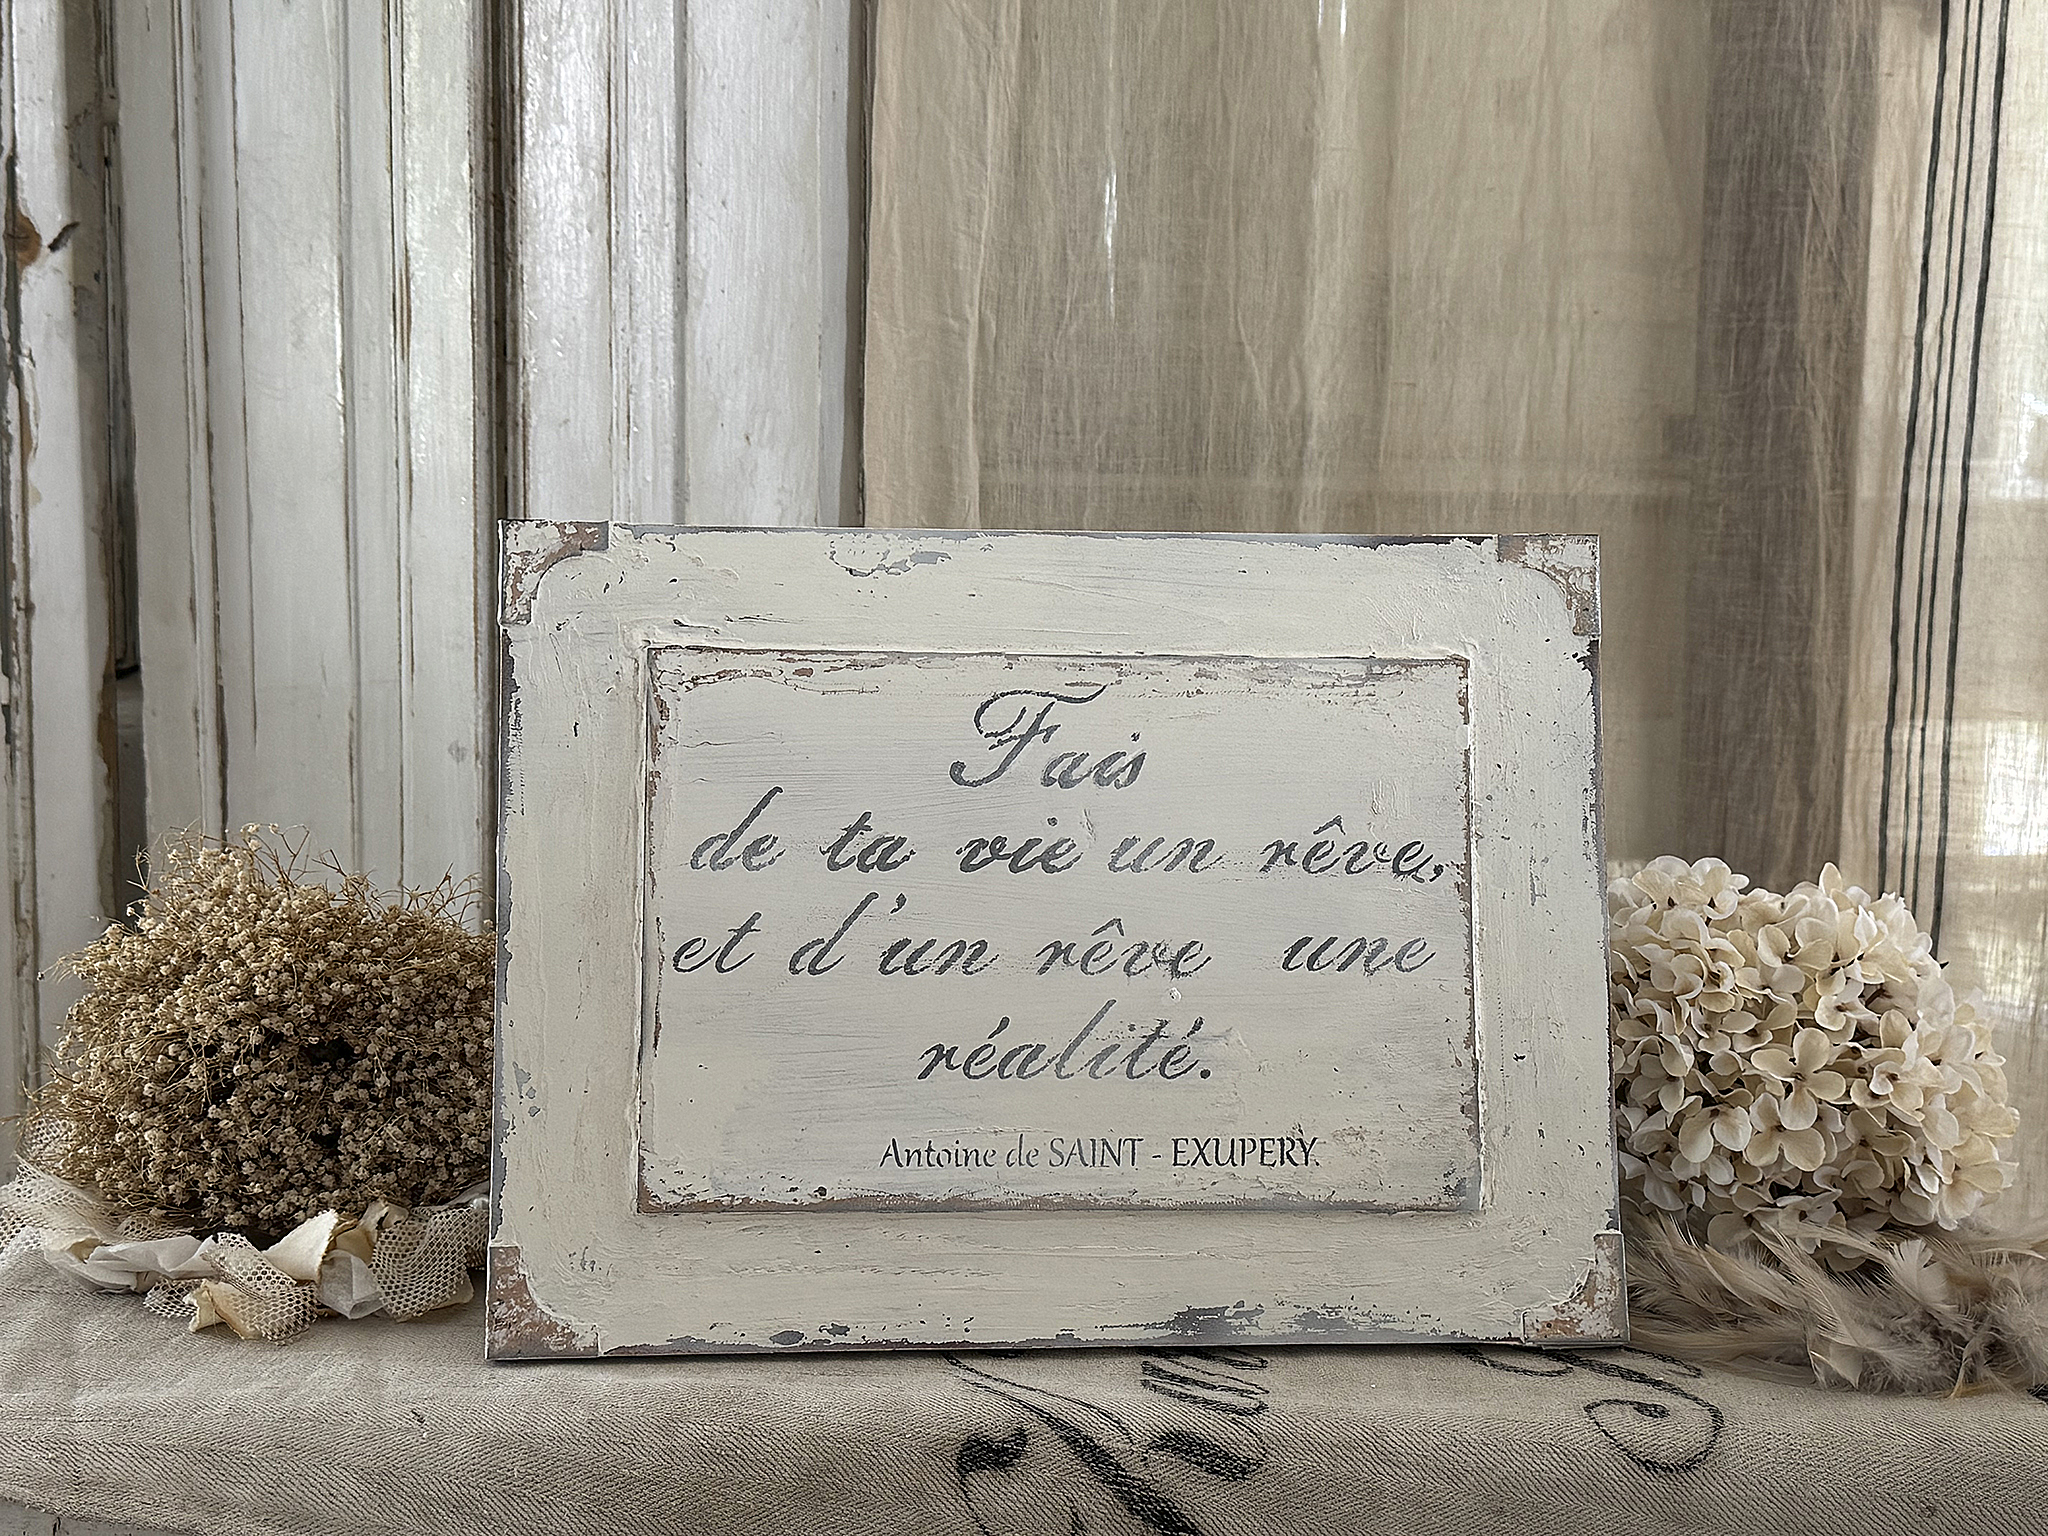 Fais
de ta vie un rêve,
et d'un rêve une
réalité.
Antoine de SAINT - EXUPERY.